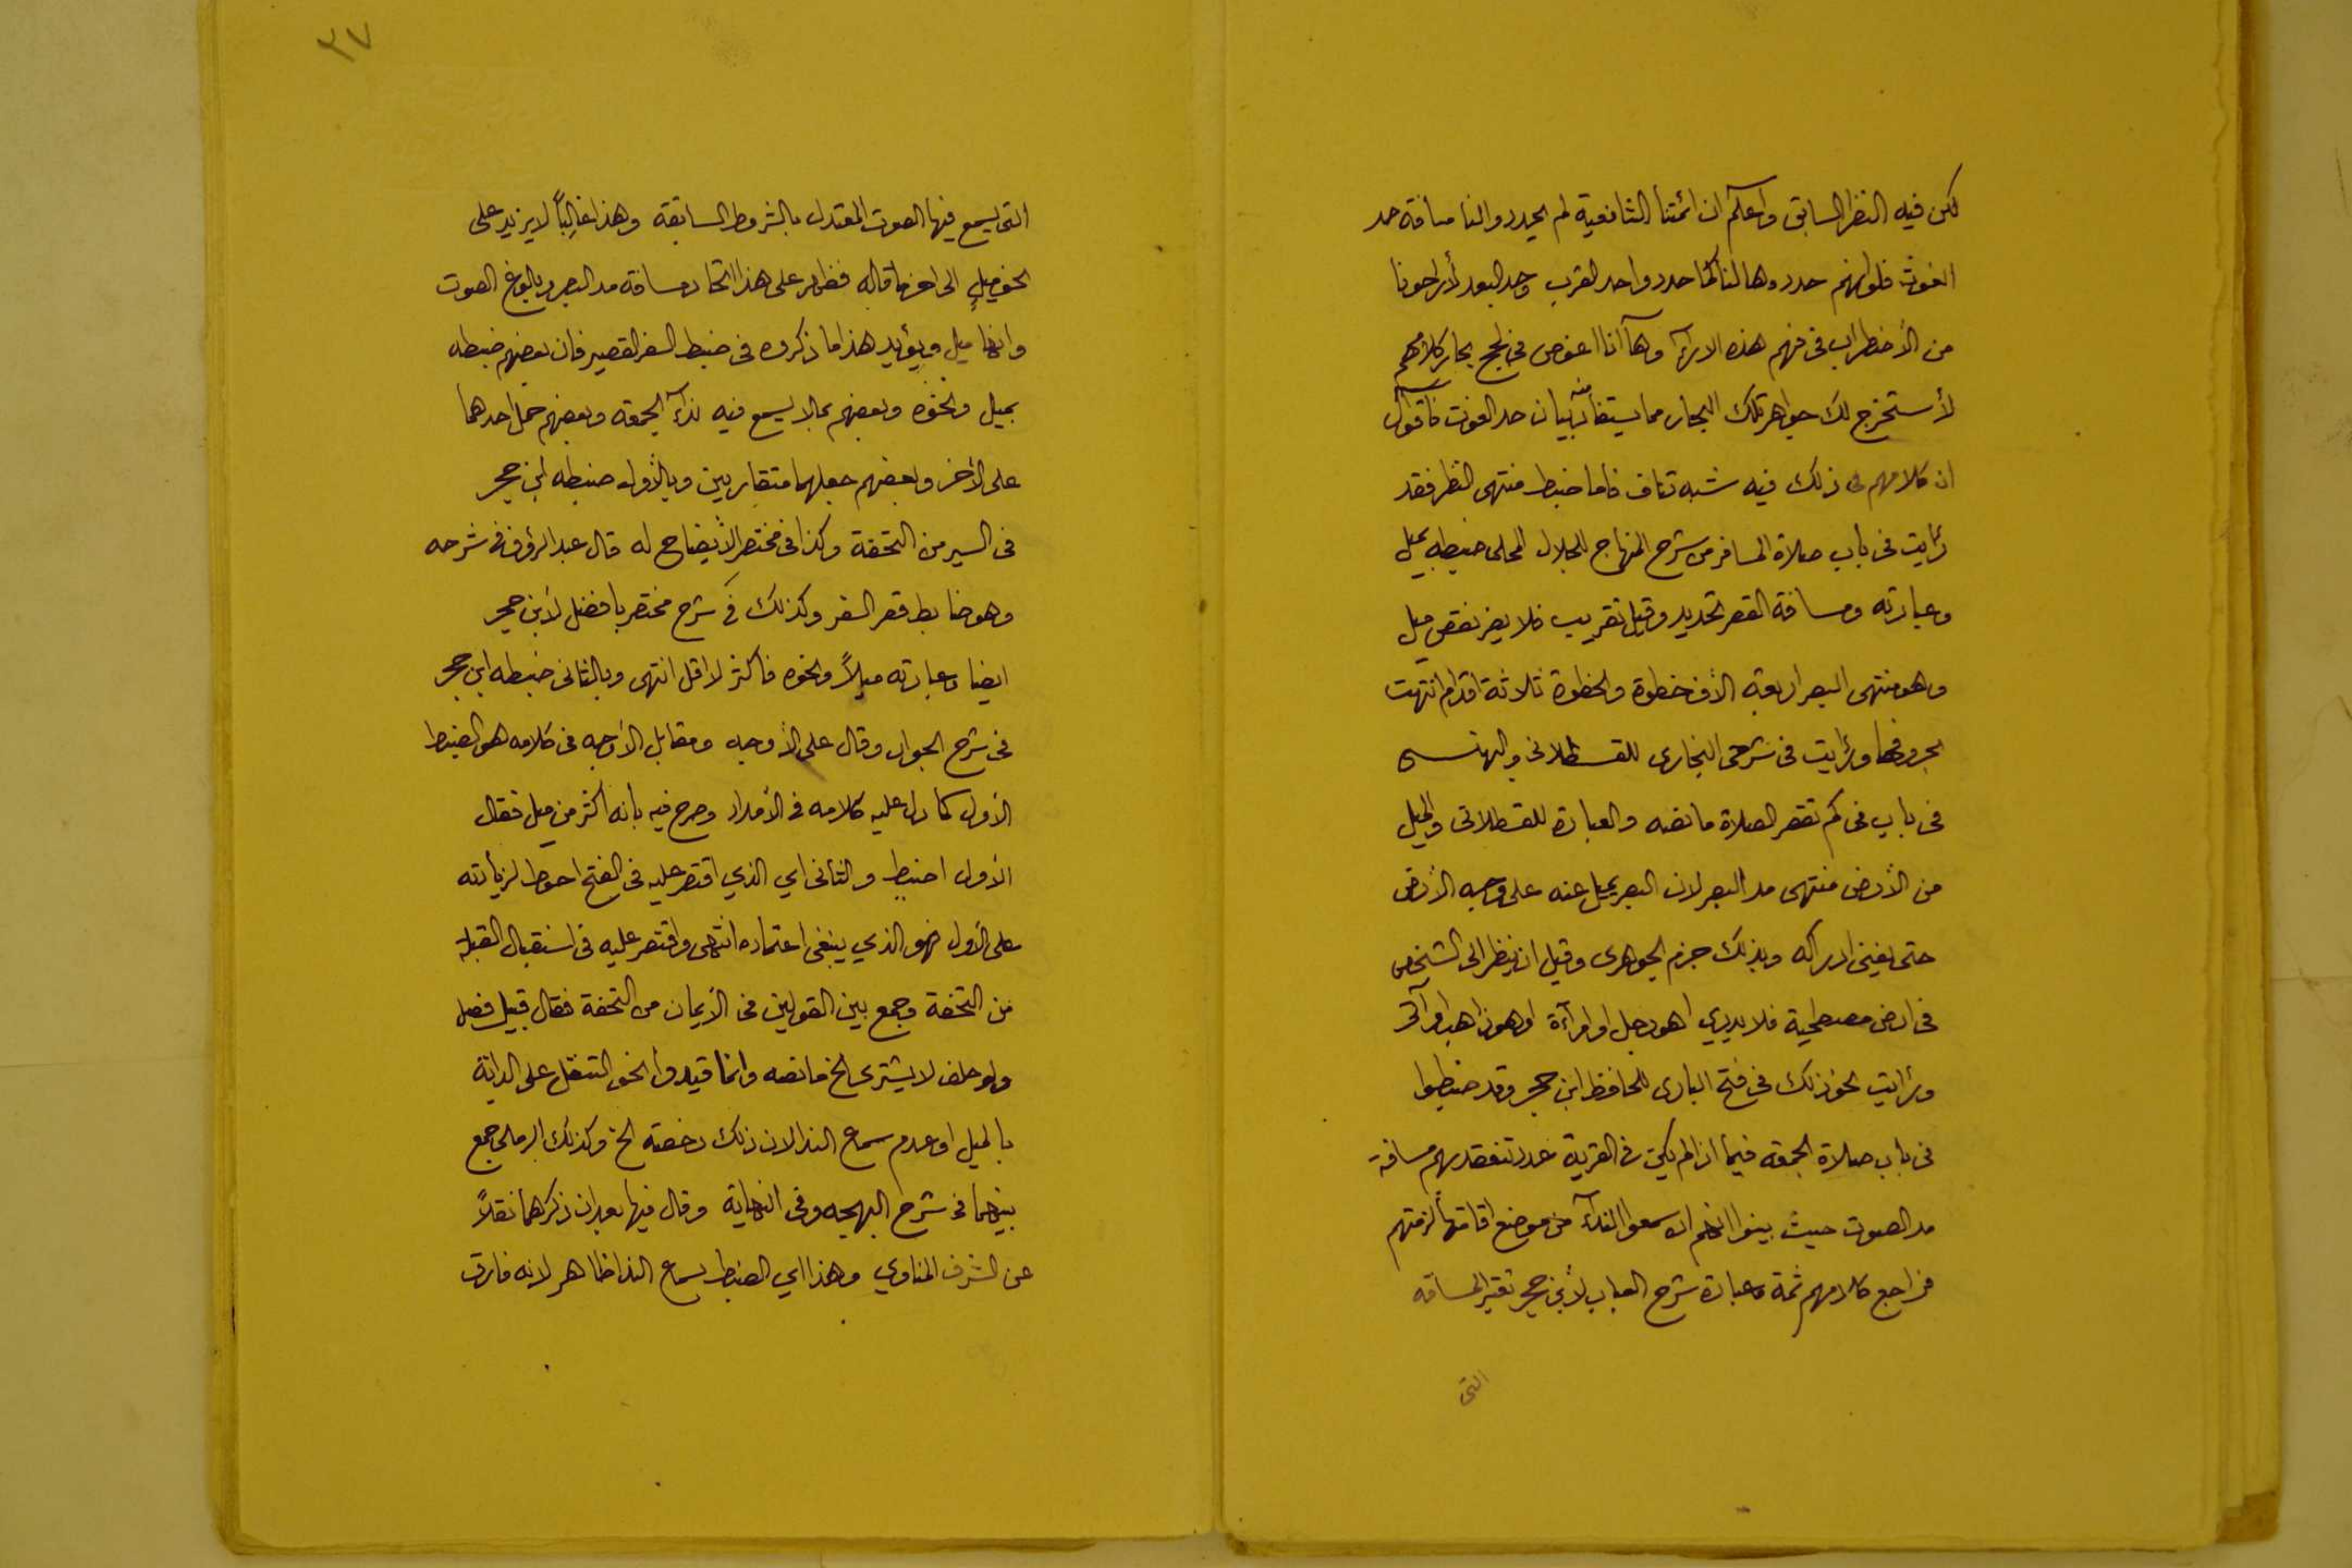 لكن فيه النظر السابق واعلم ان ائمتنا الشافعية لم يحددوا لنا مسافة حد
الغوث فلو انهم حددوها لنا كما حددوا حد القرب وحد البعد لأراحونا
من الأضطراب فى فهم هذه الارآء وهآ انا اغوص فى لجج بحار كلامهم
لأستخرج لك جواهر تلك البحار مما يستفاد منه بيان حد الغوث فاقول
ان كلامهم فى ذلك فيه شبه تناف فاما ضبط منتهى النظر فقد
رئايت فى باب صلاة المسافر من شرح المنهاج للجلال المحلى ضبطه بميل
وعبارته ومسافة القصر تحديد وقيل تقريب فلا يضر نقص ميل
وهو منتهى البصر اربعة الأف خطوة والخطوة ثلاثة اقدام انتهت
بحروفها ورئايت فى شرحى البخارى للقسطلانى و
فى باب فى كم تقصر الصلاة مانصه والعبارة للقسطلانى والميل
من الأرض منتهى مد البصر لان البصر يميل عنه على وجه الأرض
حتى يفنى ادراكه وبذلك جزم الجوهرى وقيل ان ينظر الى الشخص
فى ارض مصطحبة فلا يدري اهو رجل او امرآءة او هو ذاهب او آت
ورئايت نحو ذلك فى فتح البارى للحافظ ابن حجر وقد ضبطوا
فى باب صلاة الجمعه فيما اذا لم يكن فى القرية عدد تنعقد بهم مسافة
مد الصوت حيث بينوا انهم ان سمعوا الندآء من موضع اقامتها لزمتهم
فراجع كلامهم ثمة وعبارة شرح العباب لأبن حجر تعتبر المسافه
التى
٣٧
التى يسمع فيها الصوت المعتدل بالشروط السابقة وهذا غالبًا لا يزيد على
نحو ميل الى اخر ما قاله فظهر على هذا اتحاد مسافة مد البصر وبلوغ الصوت
وانها ميل ويؤيد هذا ما ذكروه فى ضبط السفر القصير فان بعضهم ضبطه
بميل ونحوه وبعضهم بما لا يسمع فيه ندآء الجمعه وبعضهم حمل احدهما
على الأخر وبعضهم جعلهما متقاربين وبالأول ضبطه ابن حجر
فى السير من التحفة وكذا فى مختصر الأيضاح له قال عبد الرؤف فى شرحه
وهو ضابط قصر السفر وكذلك فى شرح مختصر بافضل لأبن حجر
ايضا وعبارته ميلاً ونحوه فاكثر لا اقل انتهى وبالثانى ضبطه ابن حجر
فى شرح الجواد وقال على الأوجه ومقابل الأوجه فى كلامه هو الضبط
الأول كما دل عليه كلامه فى الأمداد وصرح فيه بأنه اكثر من ميل فقال
الأول اضبط والثانى اي الذي اقتصر عليه فى الفتح احوط لزيأدته
على الأول فهو الذي ينبغى اعتماده انتهى واقتصر عليه فى استقبال القبلة
من التحفة وجمع بين القولين فى الأيمان من التحفة فقال قبيل فصل
ولو حلف لا يشترى الخ مانصه وانما قيدوا نحو التنفل على الدابة
بالميل او عدم سماع الندا لان ذلك رخصة الخ وكذلك الرملى جمع
بينهما فى شرح البهجه وفى النهاية وقال فيها بعد ان ذكرهما نقلاً
عن الشرف المناوي وهذا اي الضبط بسماع الندا ظاهر لانه فارق